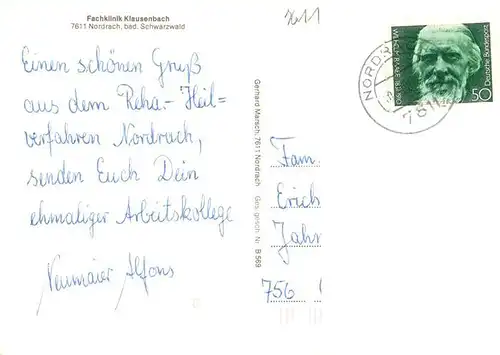 Fachklinik Klausenbach
7611 Nordrach, bad. Schwarzwald
Einen schönen Gruß
aus dem Reha.- Heil=
verfahren Nordrach,
senden Euch Dein
ehmaliger Arbeitskollege
Neumaier Alfons
Gerhard Marsch, 7611 Nordrach Ges. gesch. Nr. B 569
7611
Fam.
Erich
Jahn
756
NORDR
7611
WILHELM RAABE 1831-1910
Deutsche Bundespost
50